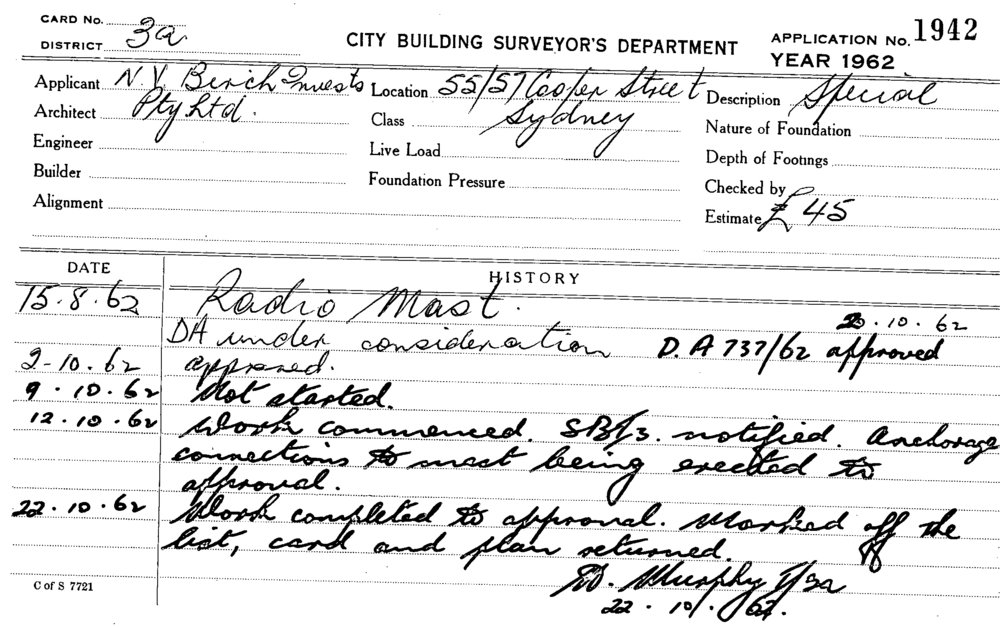 CARD No.
DISTRICT 3a
CITY BUILDING SURVEYOR'S DEPARTMENT
APPLICATION No. 1942
YEAR 1962
Applicant N.V. Berich Invests
Architect Pty Ltd.
Engineer
Builder
Alignment
Location 55/57 Cooper Street
Class Sydney
Live Load
Foundation Pressure
Description Special
Nature of Foundation
Depth of Footings
Checked by
Estimate £45
DATE HISTORY
15.8.62 Radio Mast.
DA under consideration
2.10.62
D.A 737/62 approved
2-10.62 approved.
9.10.62 Not started.
12.10.62 Work commenced. notified. Anchorage
connections to mast being erected to
approval.
22.10.62 Work completed to approval. Marked off the
list, card and plan returned.
D. Murphy 3a
22.10.62.
C of S 7721